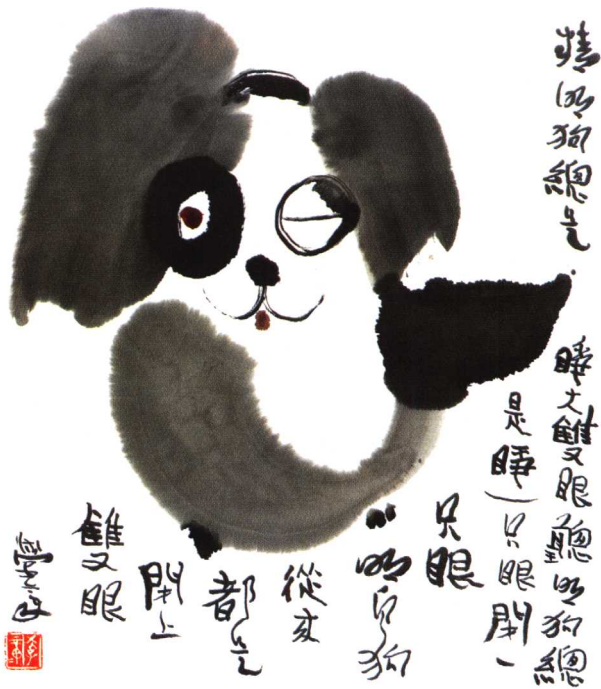 精明狗總是睜大雙眼聰明狗總
是睜一只眼閉一
只眼
明白狗
從来
都是
閉上
雙眼